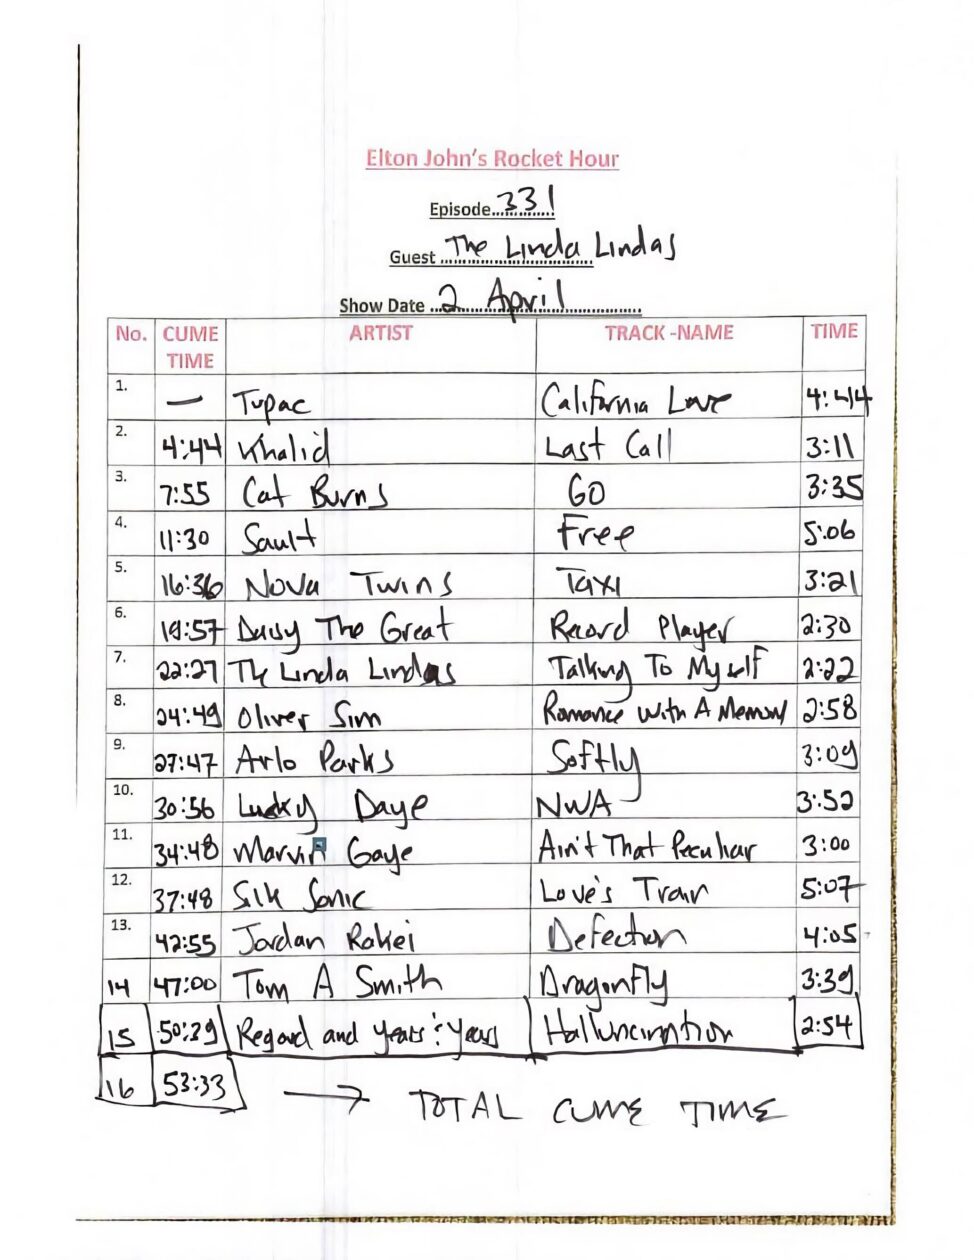 Elton John's Rocket Hour
Episode 331
Guest The Linda Lindas
Show Date 2 April
No. CUME TIME ARTIST TRACK -NAME TIME
1. — Tupac California Love 4:44
2. 4:44 Khalid Last Call 3:11
3. 7:55 Cat Burns GO 3:35
4. 11:30 Sault Free 5:06
5. 16:36 Nova Twins Taxi 3:21
6. 19:57 Daisy The Great Record Player 2:30
7. 22:27 The Linda Lindas Talking To Myself 2:22
8. 24:49 Oliver Sim Romance With A Memory 2:58
9. 27:47 Arlo Parks Softly 3:09
10. 30:56 Lucky Daye NWA 3:52
11. 34:48 Marvin Gaye Ain't That Peculiar 3:00
12. 37:48 Silk Sonic Love's Train 5:07
13. 42:55 Jordan Rakei Defection 4:05
14 47:00 Tom A Smith Dragonfly 3:39
15 50:39 Regard and Years : Years Hallunciniption 2:54
16 53:33 → TOTAL CUME TIME